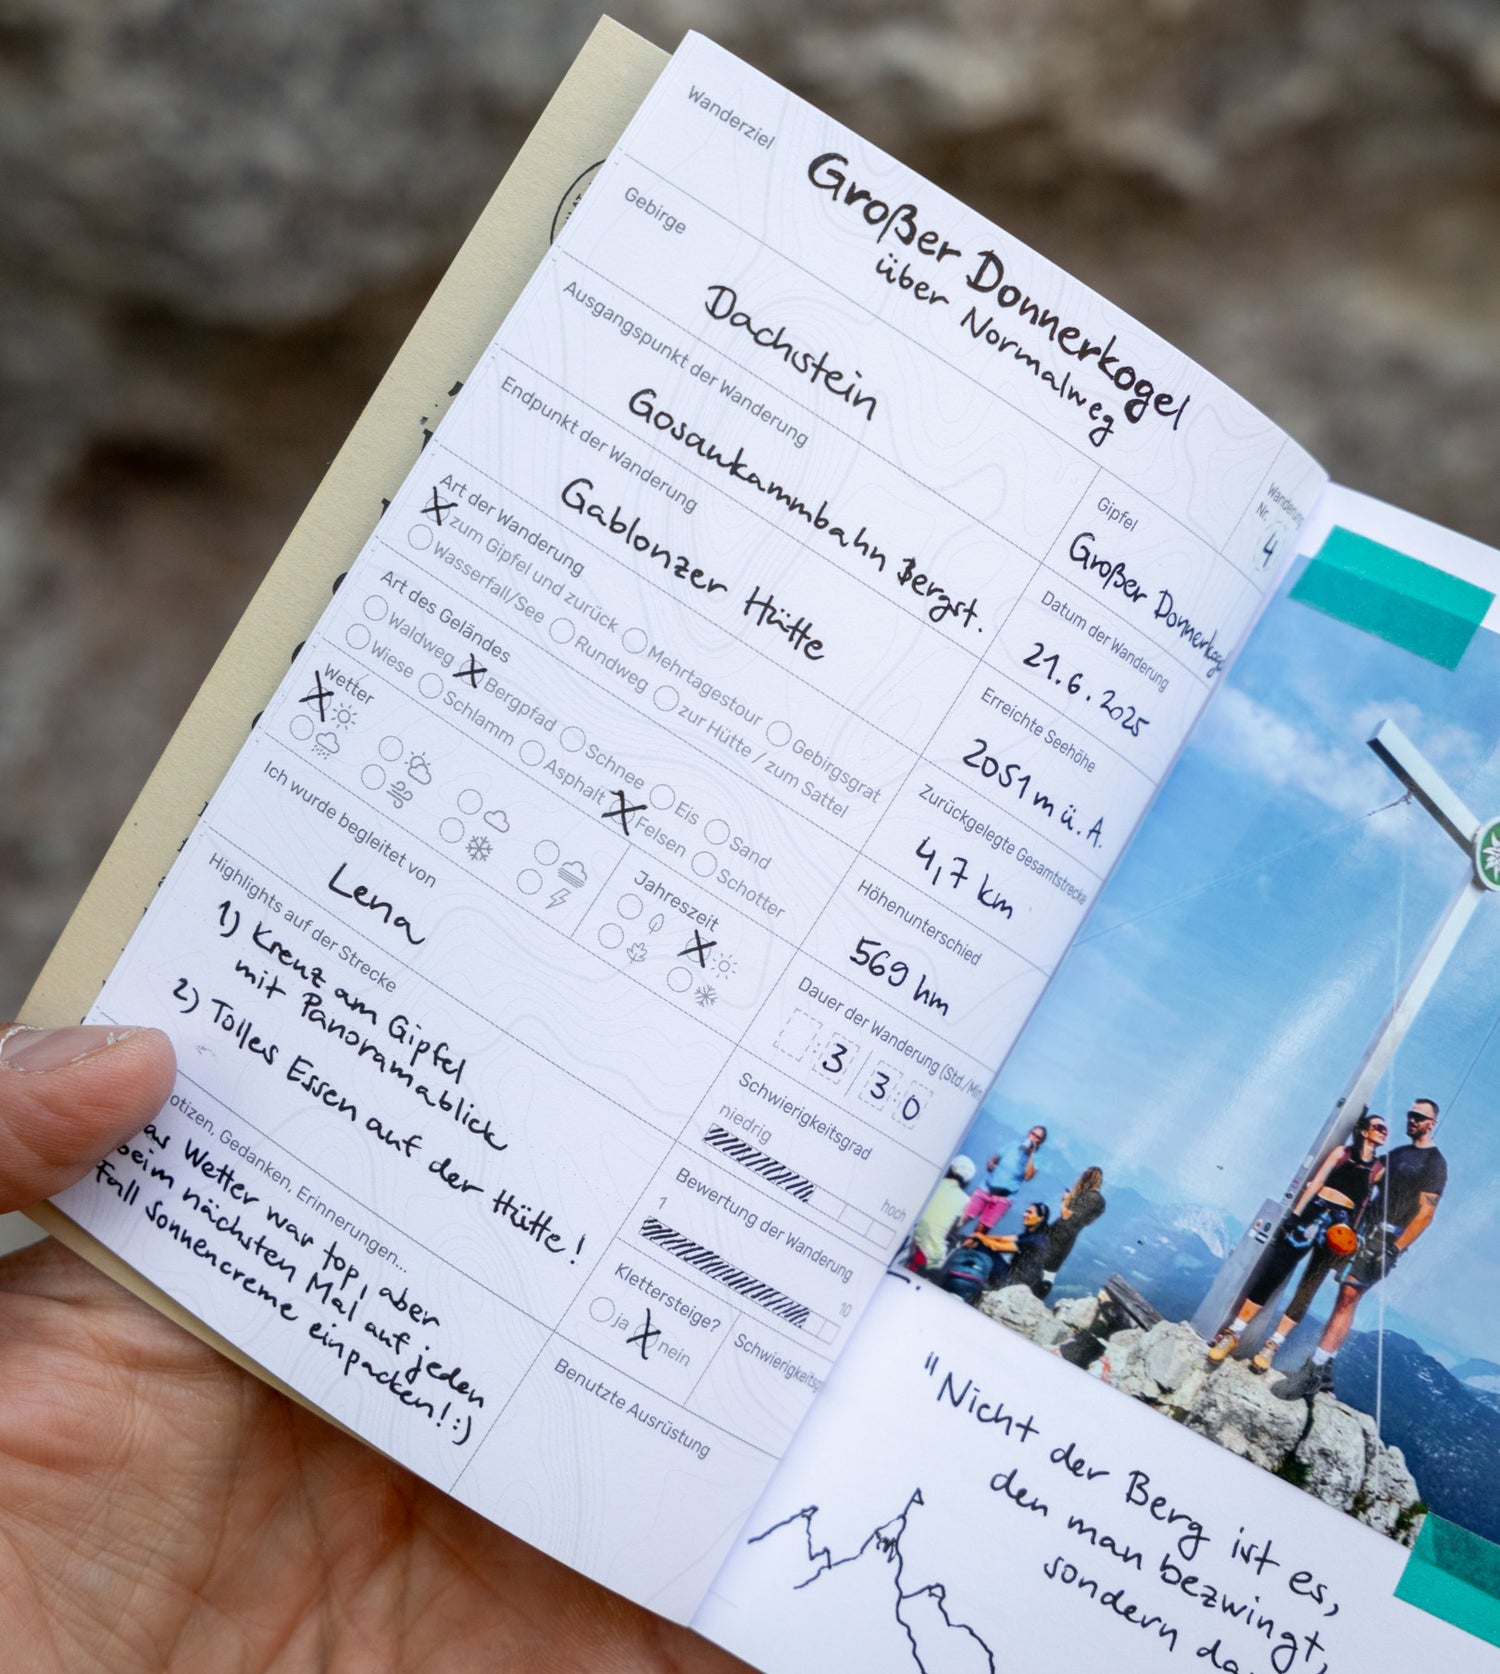 Wanderziel
Großer Donnerkogel
über Normalweg
Wanderung
Nr.
4
Gebirge
Dachstein
Gipfel
Großer Donnerkogel
Ausgangspunkt der Wanderung
Gosaukammbahn Bergst.
Datum der Wanderung
21.6.2025
Endpunkt der Wanderung
Gablonzer Hütte
Erreichte Seehöhe
2051 m ü. A.
Art der Wanderung
X zum Gipfel und zurück
Mehrtagestour
Gebirgsgrat
Wasserfall/See
Rundweg
zur Hütte / zum Sattel
Zurückgelegte Gesamtstrecke
4,7 km
Art des Geländes
Waldweg
X Bergpfad
Schnee
Eis
Sand
Wiese
Schlamm
Asphalt
X Felsen
Schotter
Höhenunterschied
569 hm
Wetter
X
Jahreszeit
X
Dauer der Wanderung (Std./Min
3 30
Ich wurde begleitet von
Lena
Schwierigkeitsgrad
niedrig
hoch
Highlights auf der Strecke
1) Kreuz am Gipfel
mit Panoramablick
2) Tolles Essen auf der Hütte!
Bewertung der Wanderung
1
10
Klettersteige?
ja
X nein
otizen, Gedanken, Erinnerungen...
as Wetter war top, aber
beim nächsten Mal auf jeden
Fall Sonnencreme einpacken! :)
Benutzte Ausrüstung
"Nicht der Berg ist es,
den man bezwingt,
sondern